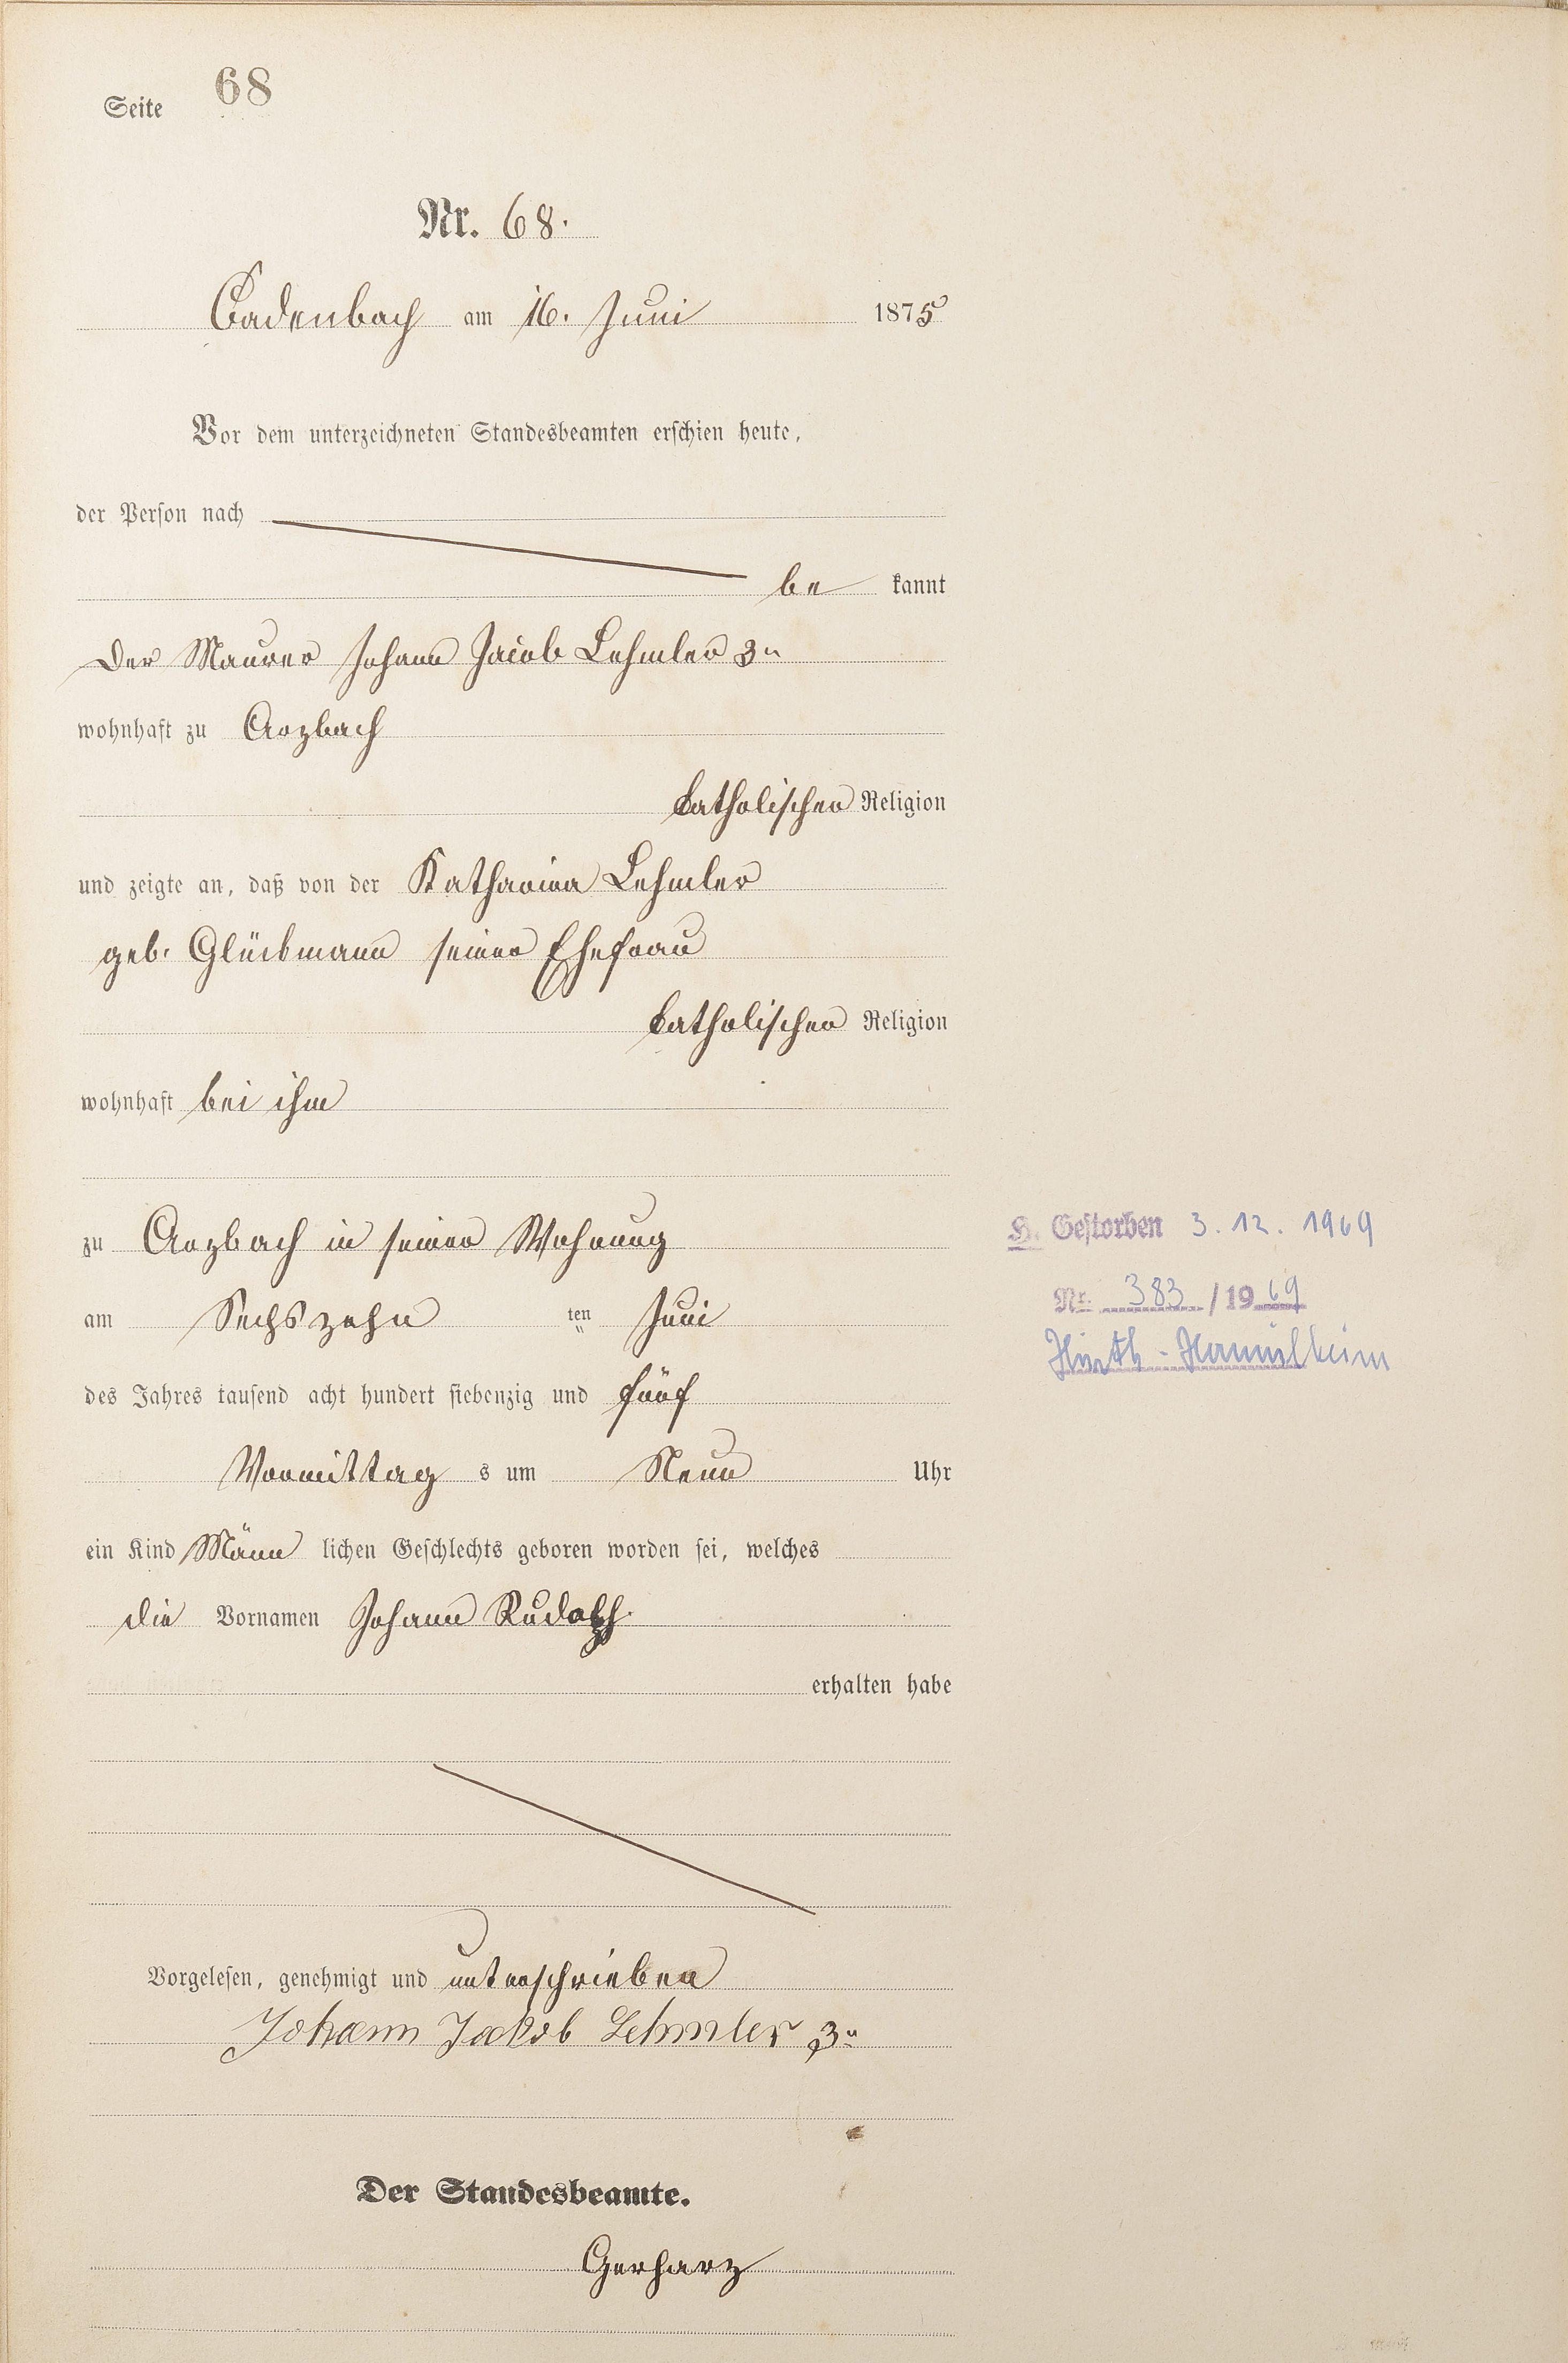 Seite 68
Nr. 68.
Cadenbach am 16. Juni 1875
Vor dem unterzeichneten Standesbeamten erschien heute,
der Person nach
be kannt
der Maurer Johann Jacob Lehmler 3r
wohnhaft zu Arzbach
katholischer Religion
und zeigte an, daß von der Katharina Lehmler
geb. Glückmann seiner Ehefrau
katholischer Religion
wohnhaft bei ihm
zu Arzbach in seiner Wohnung
am Sechszehn ten Juni
des Jahres tausend acht hundert siebenzig und fünf
Vormittag s um Neun Uhr
ein Kind Männ lichen Geschlechts geboren worden sei, welches
die Vornamen Johann Rudolph.
erhalten habe
Vorgelesen, genehmigt und unterschrieben
Johann Jakob Lehmler 3r
Der Standesbeamte.
Gerharz
H. Gestorben 3.12.1969
Nr. 383/1969
Hürth-